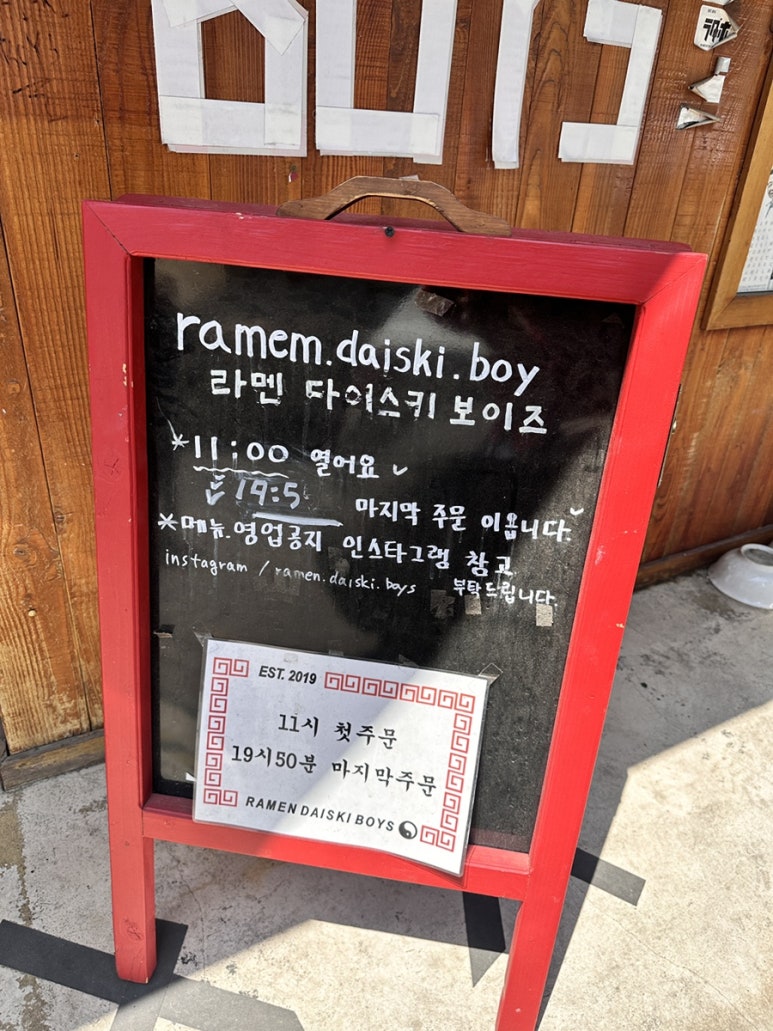 ramem.daiski.boy
라멘 다이스키 보이즈
*11:00 열어요
19:5 마지막 주문 이옵니다.
*메뉴.영업공지 인스타그램 참고
instagram / ramen.daiski.boys 부탁드립니다.
EST. 2019
11시 첫주문
19시50분 마지막주문
RAMEN DAISKI BOYS